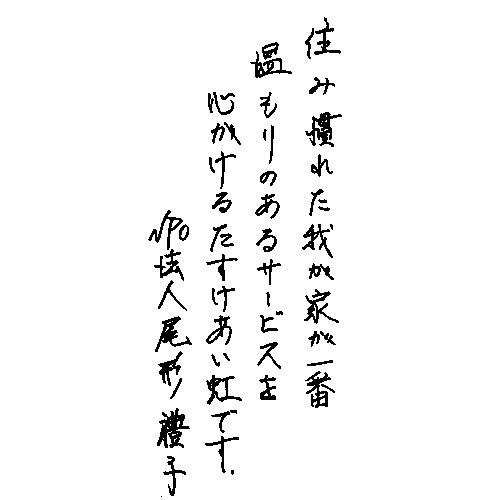 住み慣れた我が家が一番
温もりのあるサービスを
心がけるたすけあい虹です.
NPO法人尾形禮子